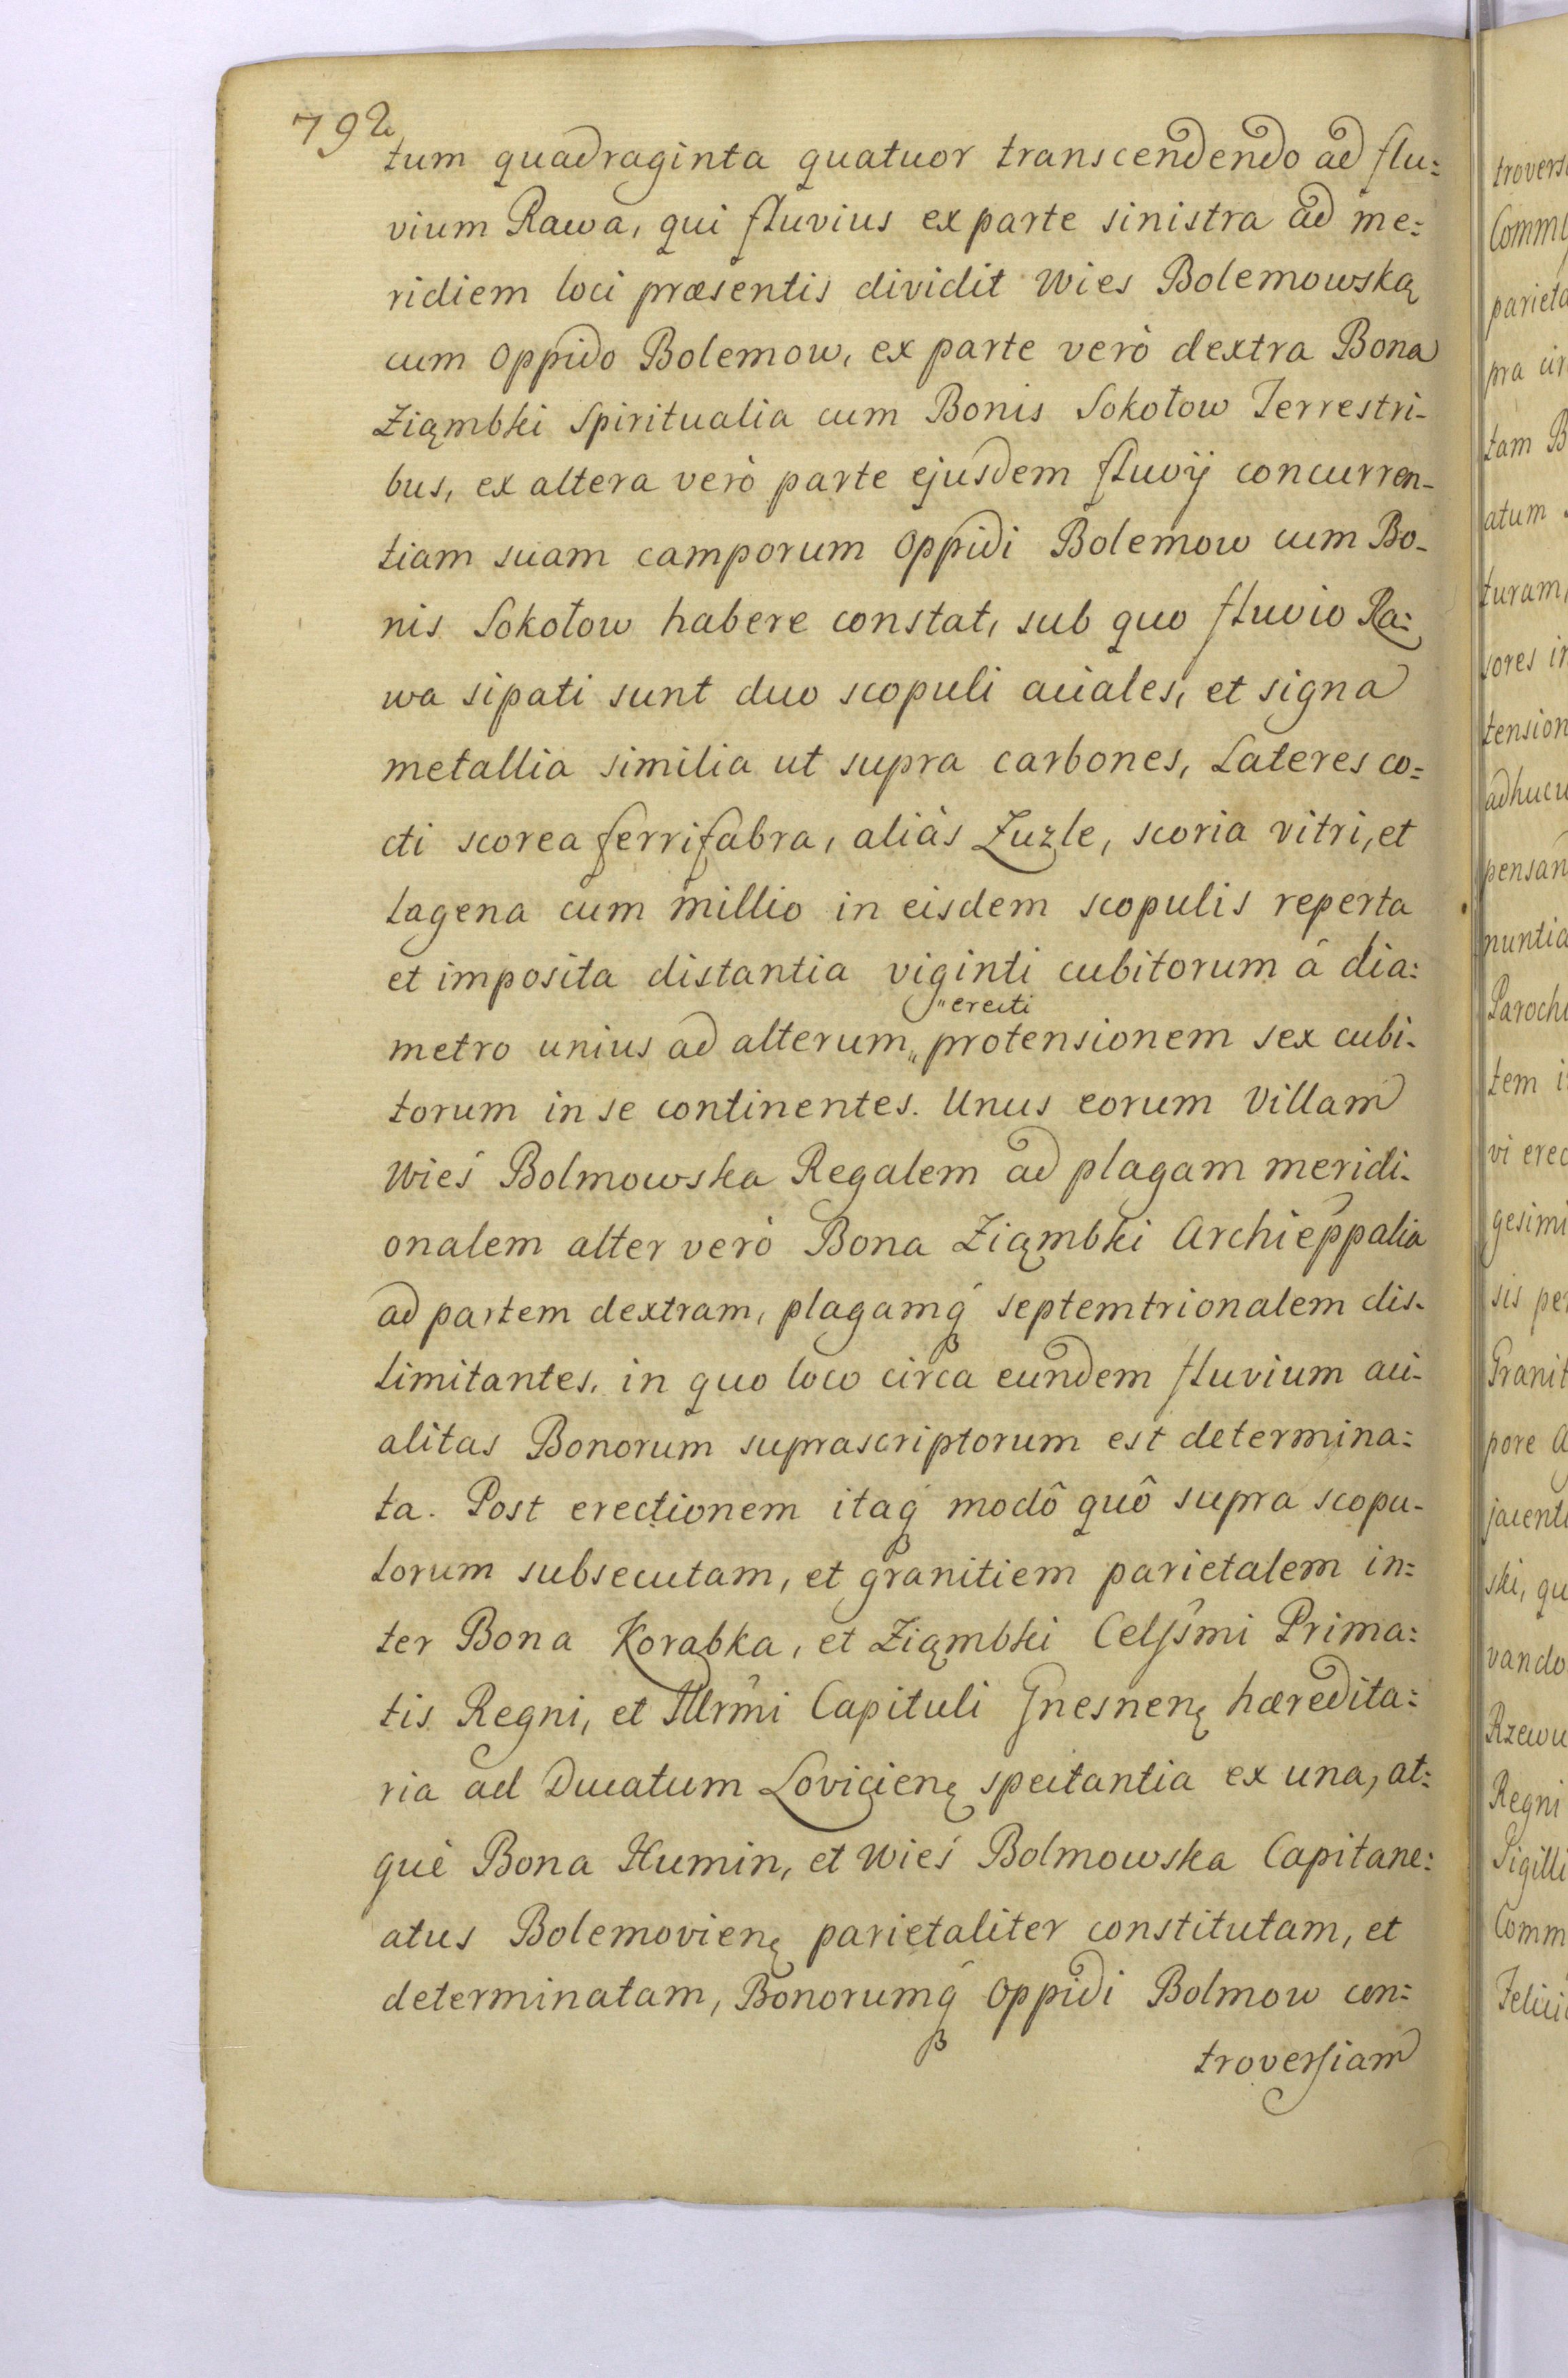 792
tum quadraginta quatuor transcendendo ad flu:
vium Rawa, qui fluvius ex parte sinistra ad me:
ridiem loci præsentis dividit Wies Bolemowską
cum Oppido Bolemow, ex parte verò dextra Bona
Ziąmbki Spiritualia cum Bonis Sokołow Terrestri-
bus, ex altera verò parte ejusdem fluvÿ concurren-
tiam suam camporum Oppidi Bolemow cum Bo-
nis Sokołow habere constat, sub quo fluvio Ra:
wa sipati sunt duo scopuli aciales, et signa
metallia similia ut supra carbones, Lateres co:
cti scorea ferrifabra, aliàs Zuzle, scoria vitri, et
Lagena cum millio in eisdem scopulis reperta
et imposita distantia viginti cubitorum â dia:
"erecti
metro unius ad alterum„ protensionem sex cubi-
torum in se continentes. Unus eorum Villam
Wieś Bolmowska Regalem ad plagam meridi-
onalem alter verò Bona Ziąmbki Archieppalia
ad partem dextram, plagamq́ septemtrionalem dis-
limitantes, in quo loco circa eundem fluvium aci-
alitas Bonorum suprascriptorum est determina:
ta. Post erectionem itaq́ modô quô supra scopu-
lorum subsecutam, et granitiem parietalem in:
ter Bona Korabka, et Ziąmbki Celssmi Prima:
tis Regni, et Illrmi Capituli Gnesnenę hæredita:
ria ad Ducatum Lovicienę spectantia ex una, at:
què Bona Humin, et Wieś Bolmowska Capitane:
atus Bolemovienę parietaliter constitutam, et
determinatam, Bonorumq́ Oppidi Bolmow con:
troversiam